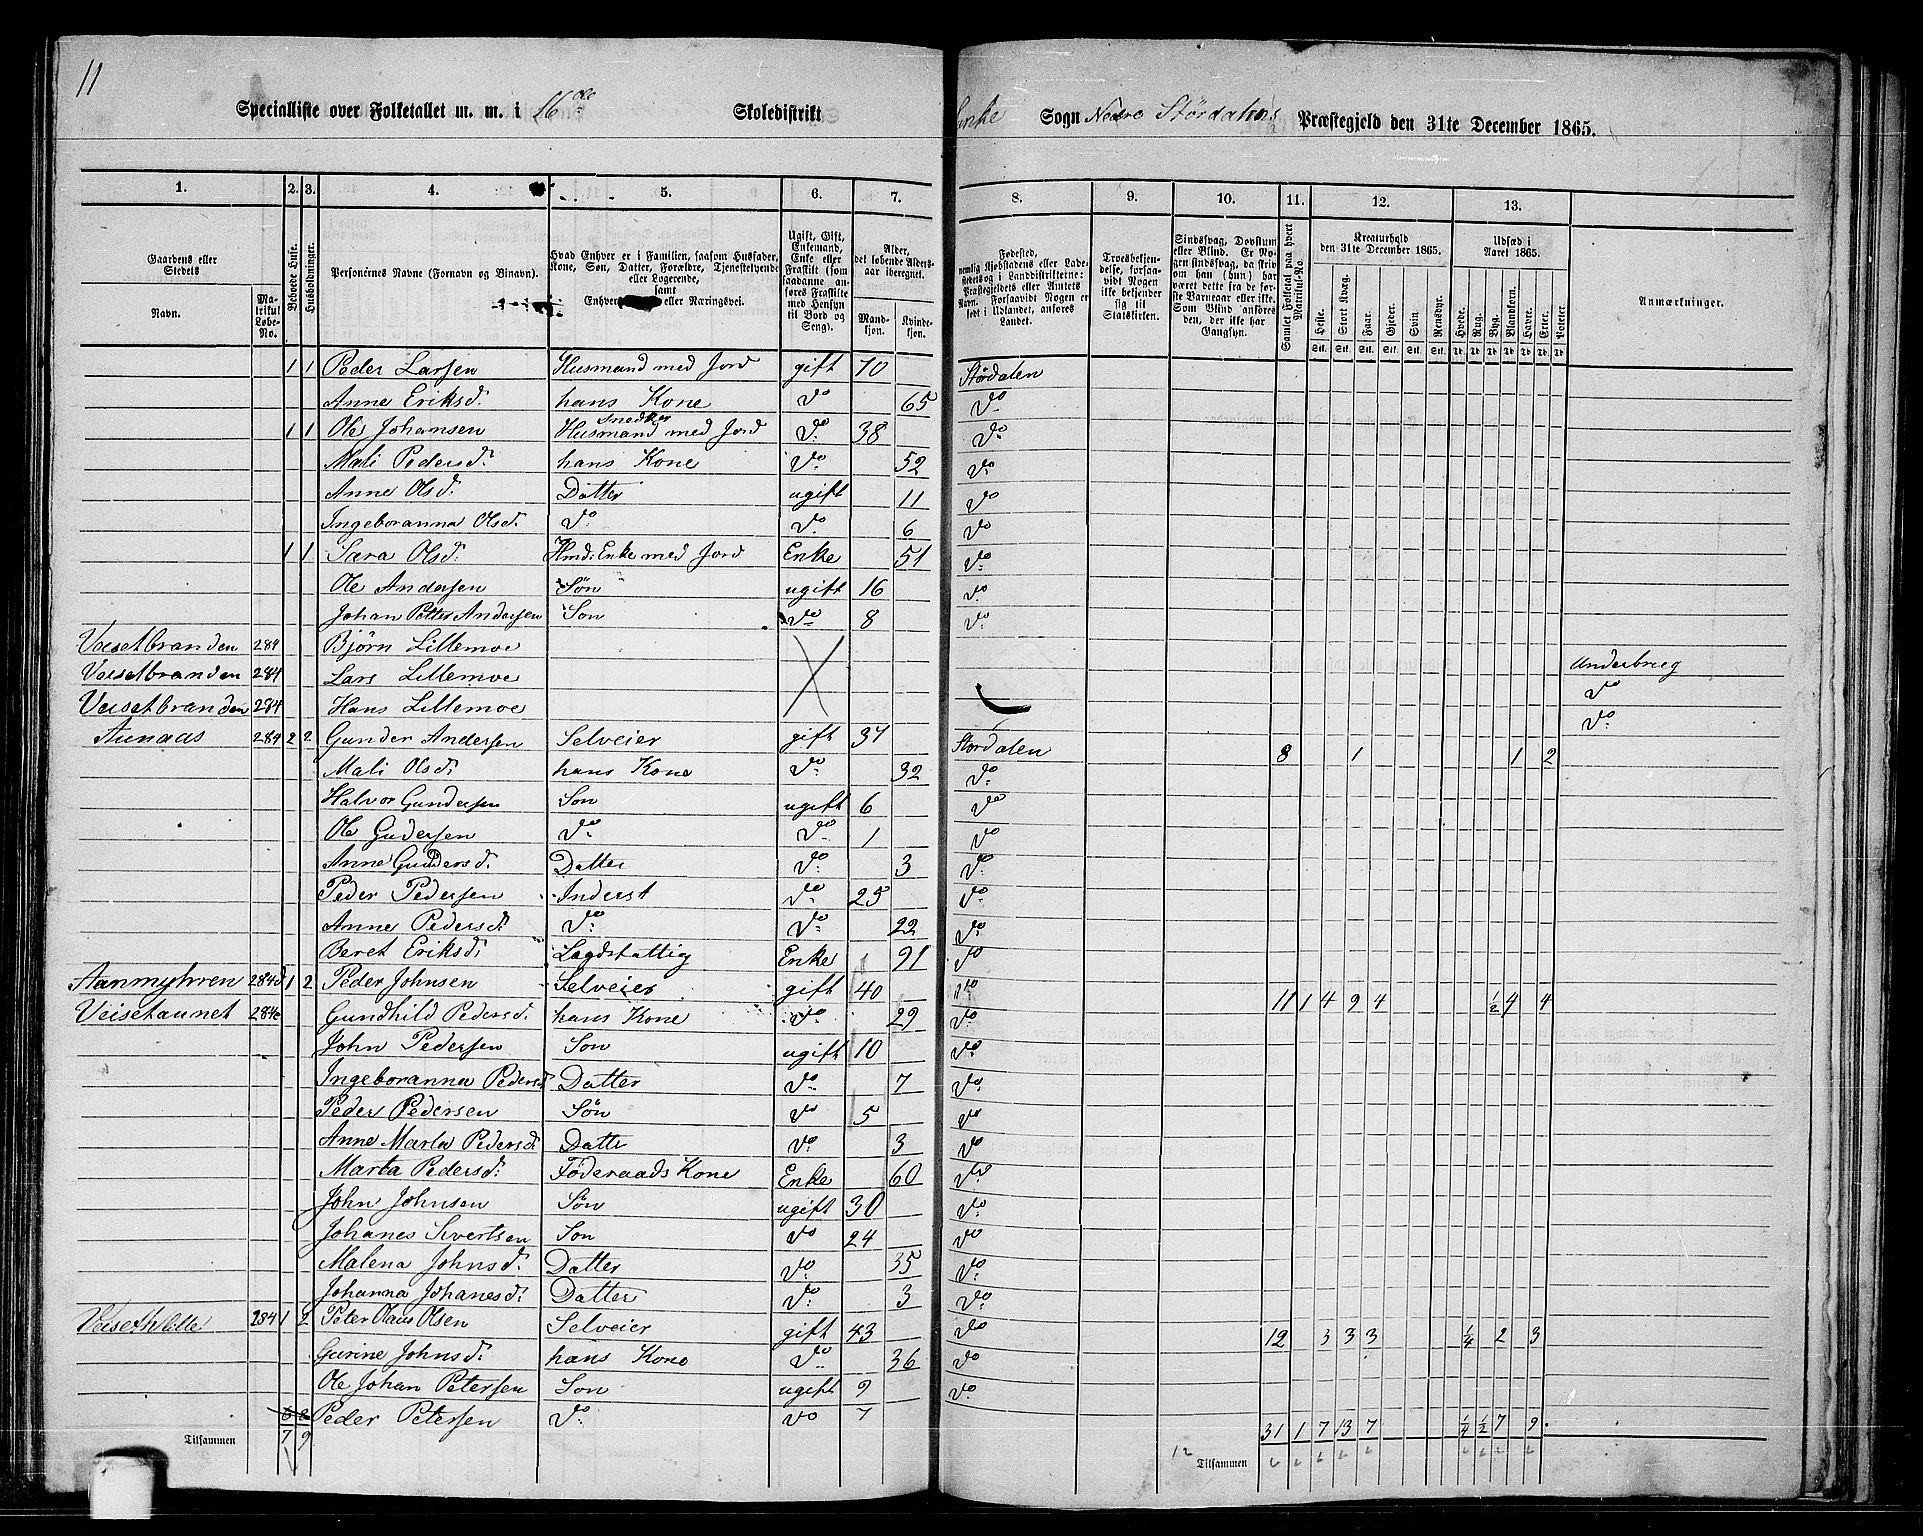 11
Specialliste over Folketallet m. m. i 16de Skoledistrikt
Lånke Sogn Nedre Stördalens Præstegjeld den 31te December 1865.
1. 2. 3. 4. 5. 6. 7. 8. 9. 10. 11. 12. 13.
Gaardens eller Stedets
Navn.
Matrikul Løbe-No.
Beboede Huse.
Husholdninger.
Personernes Navne (Fornavn og Binavn).
Hvad Enhver er i Familien, saasom Husfader, Kone, Søn, Datter, Forældre, Tjenestetyende eller Logerende, samt Enhvers eller Næringsvei.
Ugift, Gift, Enkemand, Enke eller Fraskilt (som saadanne anføres Fraskilte med Hensyn til Bord og Seng).
Alder, det løbende Aldersaar iberegnet.
Mandkjøn.
Kvindekjøn.
Fødested, nemlig Kjøbstadens eller Ladestedets og i Landdistrikterne: Præstegjeldets eller Amtets Navn. Forsaavidt Nogen er født i Udlandet, anføres Landet.
Troesbekjendelse, forsaavidt Nogen ikke bekjender sig til Statskirken.
Sindssvag, Døvstum eller Blind. Er Nogen sindssvag, da skrives om han (hun) har været dette fra de første Barneaar eller ikke. Som Blind anføres den, der ikke har Gangsyn.
Samlet Folketal paa hvert Matrikul-No.
Kreaturhold den 31te December 1865.
Heste. Stort Kvæg. Faar. Gjeder. Svin. Rensdyr.
Udsæd i Aaret 1865.
Hvede. Rug. Byg. Blandkorn. Havre. Erter. Poteter.
Anmærkninger.
1 1 Peder Larsen Husmand med Jord gift 70 Stördalen
Anne Eriksd. hans Kone Do 65 Do
1 1 Ole Johansen Snedker Husmand med Jord Do 38 Do
Mali Pedersd. hans Kone Do 52 Do
Anne Olsd. Datter ugift 11 Do
Ingeboranna Olsd. Do Do 6 Do
1 1 Sara Olsd. Hmd: Enke med Jord Enke 51 Do
Ole Andersen Søn ugift 16 Do
Johan Petter Andersen Son Do 8 Do
Veisetbranden 284 Björn Lillemoe Underbrug
Veisetbranden 284 Lars Lillemoe Do
Veisetbranden 284 Hans Lillemoe Do
Aunaas 284 2 2 Gunder Andersen Selveier gift 37 Stordalen 8 1 1 2
Mali Olsd. hans Kone Do 32 Do
Halvor Gundersen Son ugift 6 Do
Ole Gudersen Do Do 1 Do
Anne Gundersd. Datter Do 3 Do
Peder Pedersen Inderst Do 25 Do
Anne Pedersd. Do Do 22 Do
Beret Eriksd. Lægdslattig Enke 91 Do
Aanmyhren 284d 1 2 Peder Johnsen Selveier gift 40 Do 11 1 4 9 4 ½ 4 4
Veisetaunet 284e Gundhild Pedersd. hans Kone Do 29 Do
John Pedersen Son ugift 10 Do
Ingeboranna Pedersd. Datter Do 7 Do
Peder Pedersen Søn Do 5 Do
Anne Marta Pedersd. Datter Do 3 Do
Marta Pedersd. Föderaads Kone Enke 60 Do
John Johnsen Søn ugift 30 Do
Johanes Sivertsen Son Do 24 Do
Malena Johnsd. Datter Do 35 Do
Johanna Johanesd. Datter Do 3 Do
284 1 2 Peter Olaus Olsen Selveier gift 43 Do 12 3 3 3 ¼ 2 3
Gurine Johnsd. hans Kone Do 36 Do
Ole Johan Petersen Son ugift 9 Do
Peder Petersen Do Do 7
Tilsammen 7 9
12 Tilsammen 31 1 7 13 7 ¼ ½ 7 9